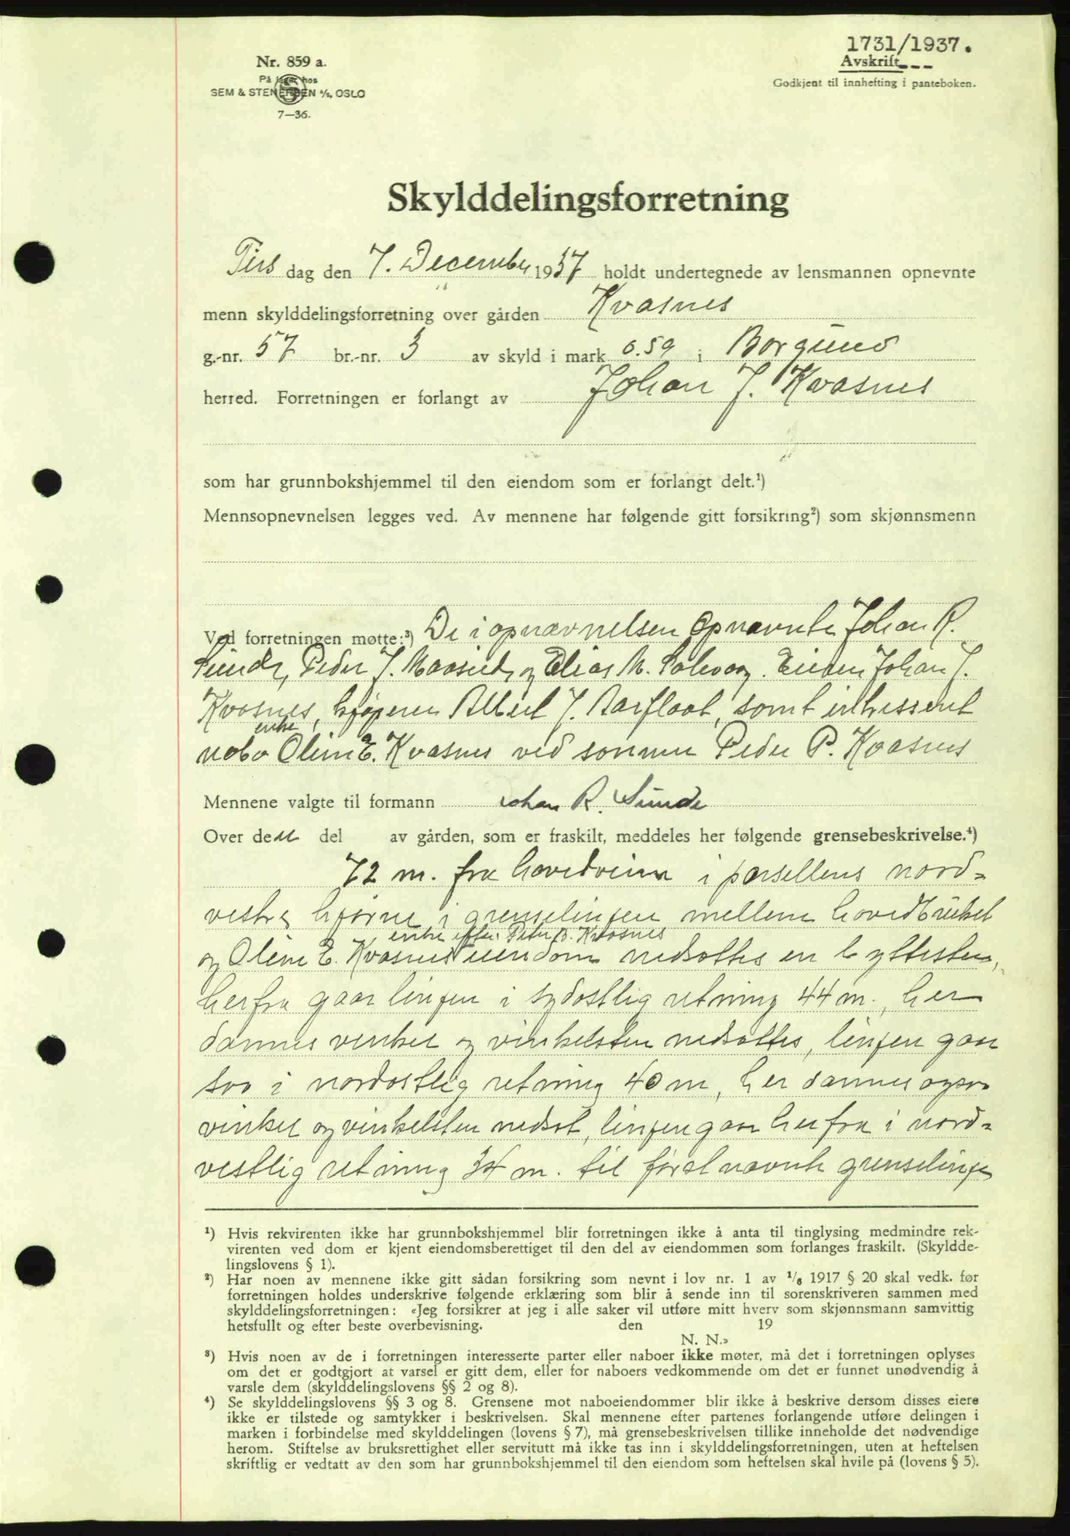 1731/1937.
Avskrift
Godkjent til innhefting i panteboken.
Nr. 859 a.
På lager hos
SEM & STENERSEN A/S, OSLO
7—36.
Skylddelingsforretning
Tirs dag den 7. December 1937 holdt undertegnede av lensmannen opnevnte
menn skylddelingsforretning over gården Kvasnes
g.-nr. 57 br.-nr. 3 av skyld i mark 0.59 i Borgund
herred. Forretningen er forlangt av Johan J. Kvasnes
som har grunnbokshjemmel til den eiendom som er forlangt delt.¹)
Mennsopnevnelsen legges ved. Av mennene har følgende gitt forsikring²) som skjønnsmenn
Ved forretningen møtte:³) De i opnævnelsen opnævnte Johan R.
Sunde, Peder J. og Elias M. Solevaag. Eieren Johan J.
Kvasnes, kjøperen Albert J. Aarflaat, samt interessert
nabo enke Oline E. Kvasnes ved sønnen Peder P. Kvasnes
Mennene valgte til formann Johan R. Sunde
Over den del av gården, som er fraskilt, meddeles her følgende grensebeskrivelse.⁴)
72 m. fra hovedveien i parsellens nord-
vestre hjørne i grenselinjen mellem hovedbruket
enke efter Peter B. Kvasnes
og Oline E. Kvasnes eiendom nedsattes en byttesten,
herfra gaar linjen i sydostlig retning 44 m., her
dannes vinkel og vinkelsten nedsattes, linjen gaar
saa i nordostlig retning 40 m, her dannes ogsaa
vinkel og vinkelsten nedsat, linjen gaar herfra i nord-
vestlig retning 34 m. til først nævnte grenselinje
¹) Hvis rekvirenten ikke har grunnbokshjemmel blir forretningen ikke å anta til tinglysing medmindre rek-
virenten ved dom er kjent eiendomsberettiget til den del av eiendommen som forlanges fraskilt. (Skyldde-
lingslovens § 1).
²) Har noen av mennene ikke gitt sådan forsikring som nevnt i lov nr. 1 av ¹/₆ 1917 § 20 skal vedk. før
forretningen holdes underskrive følgende erklæring som blir å sende inn til sorenskriveren sammen med
skylddelingsforretningen: «Jeg forsikrer at jeg i alle saker vil utføre mitt hverv som skjønnsmann samvittig
hetsfullt og efter beste overbevisning. den 19
N. N.»
³) Hvis noen av de i forretningen interesserte parter eller naboer ikke møter, må det i forretningen oplyses
om det er godtgjort at varsel er gitt dem, eller for naboers vedkommende om det er funnet unødvendig å
varsle dem (skylddelingslovens §§ 2 og 8).
⁴) Se skylddelingslovens §§ 3 og 8. Grensene mot naboeiendommer blir ikke å beskrive dersom disses eiere
ikke er tilstede og samtykker i beskrivelsen. Skal mennene efter partenes forlangende utføre delingen i
marken i forbindelse med skylddelingen (lovens § 7), må grensebeskrivelsen tillike inneholde det nødvendige
herom. Stiftelse av bruksrettighet eller servitutt må ikke tas inn i skylddelingsforretningen, uten at heftelsen
skriftlig er vedtatt av den som har grunnbokshjemmel til den eiendom som heftelsen skal hvile på (lovens § 5).